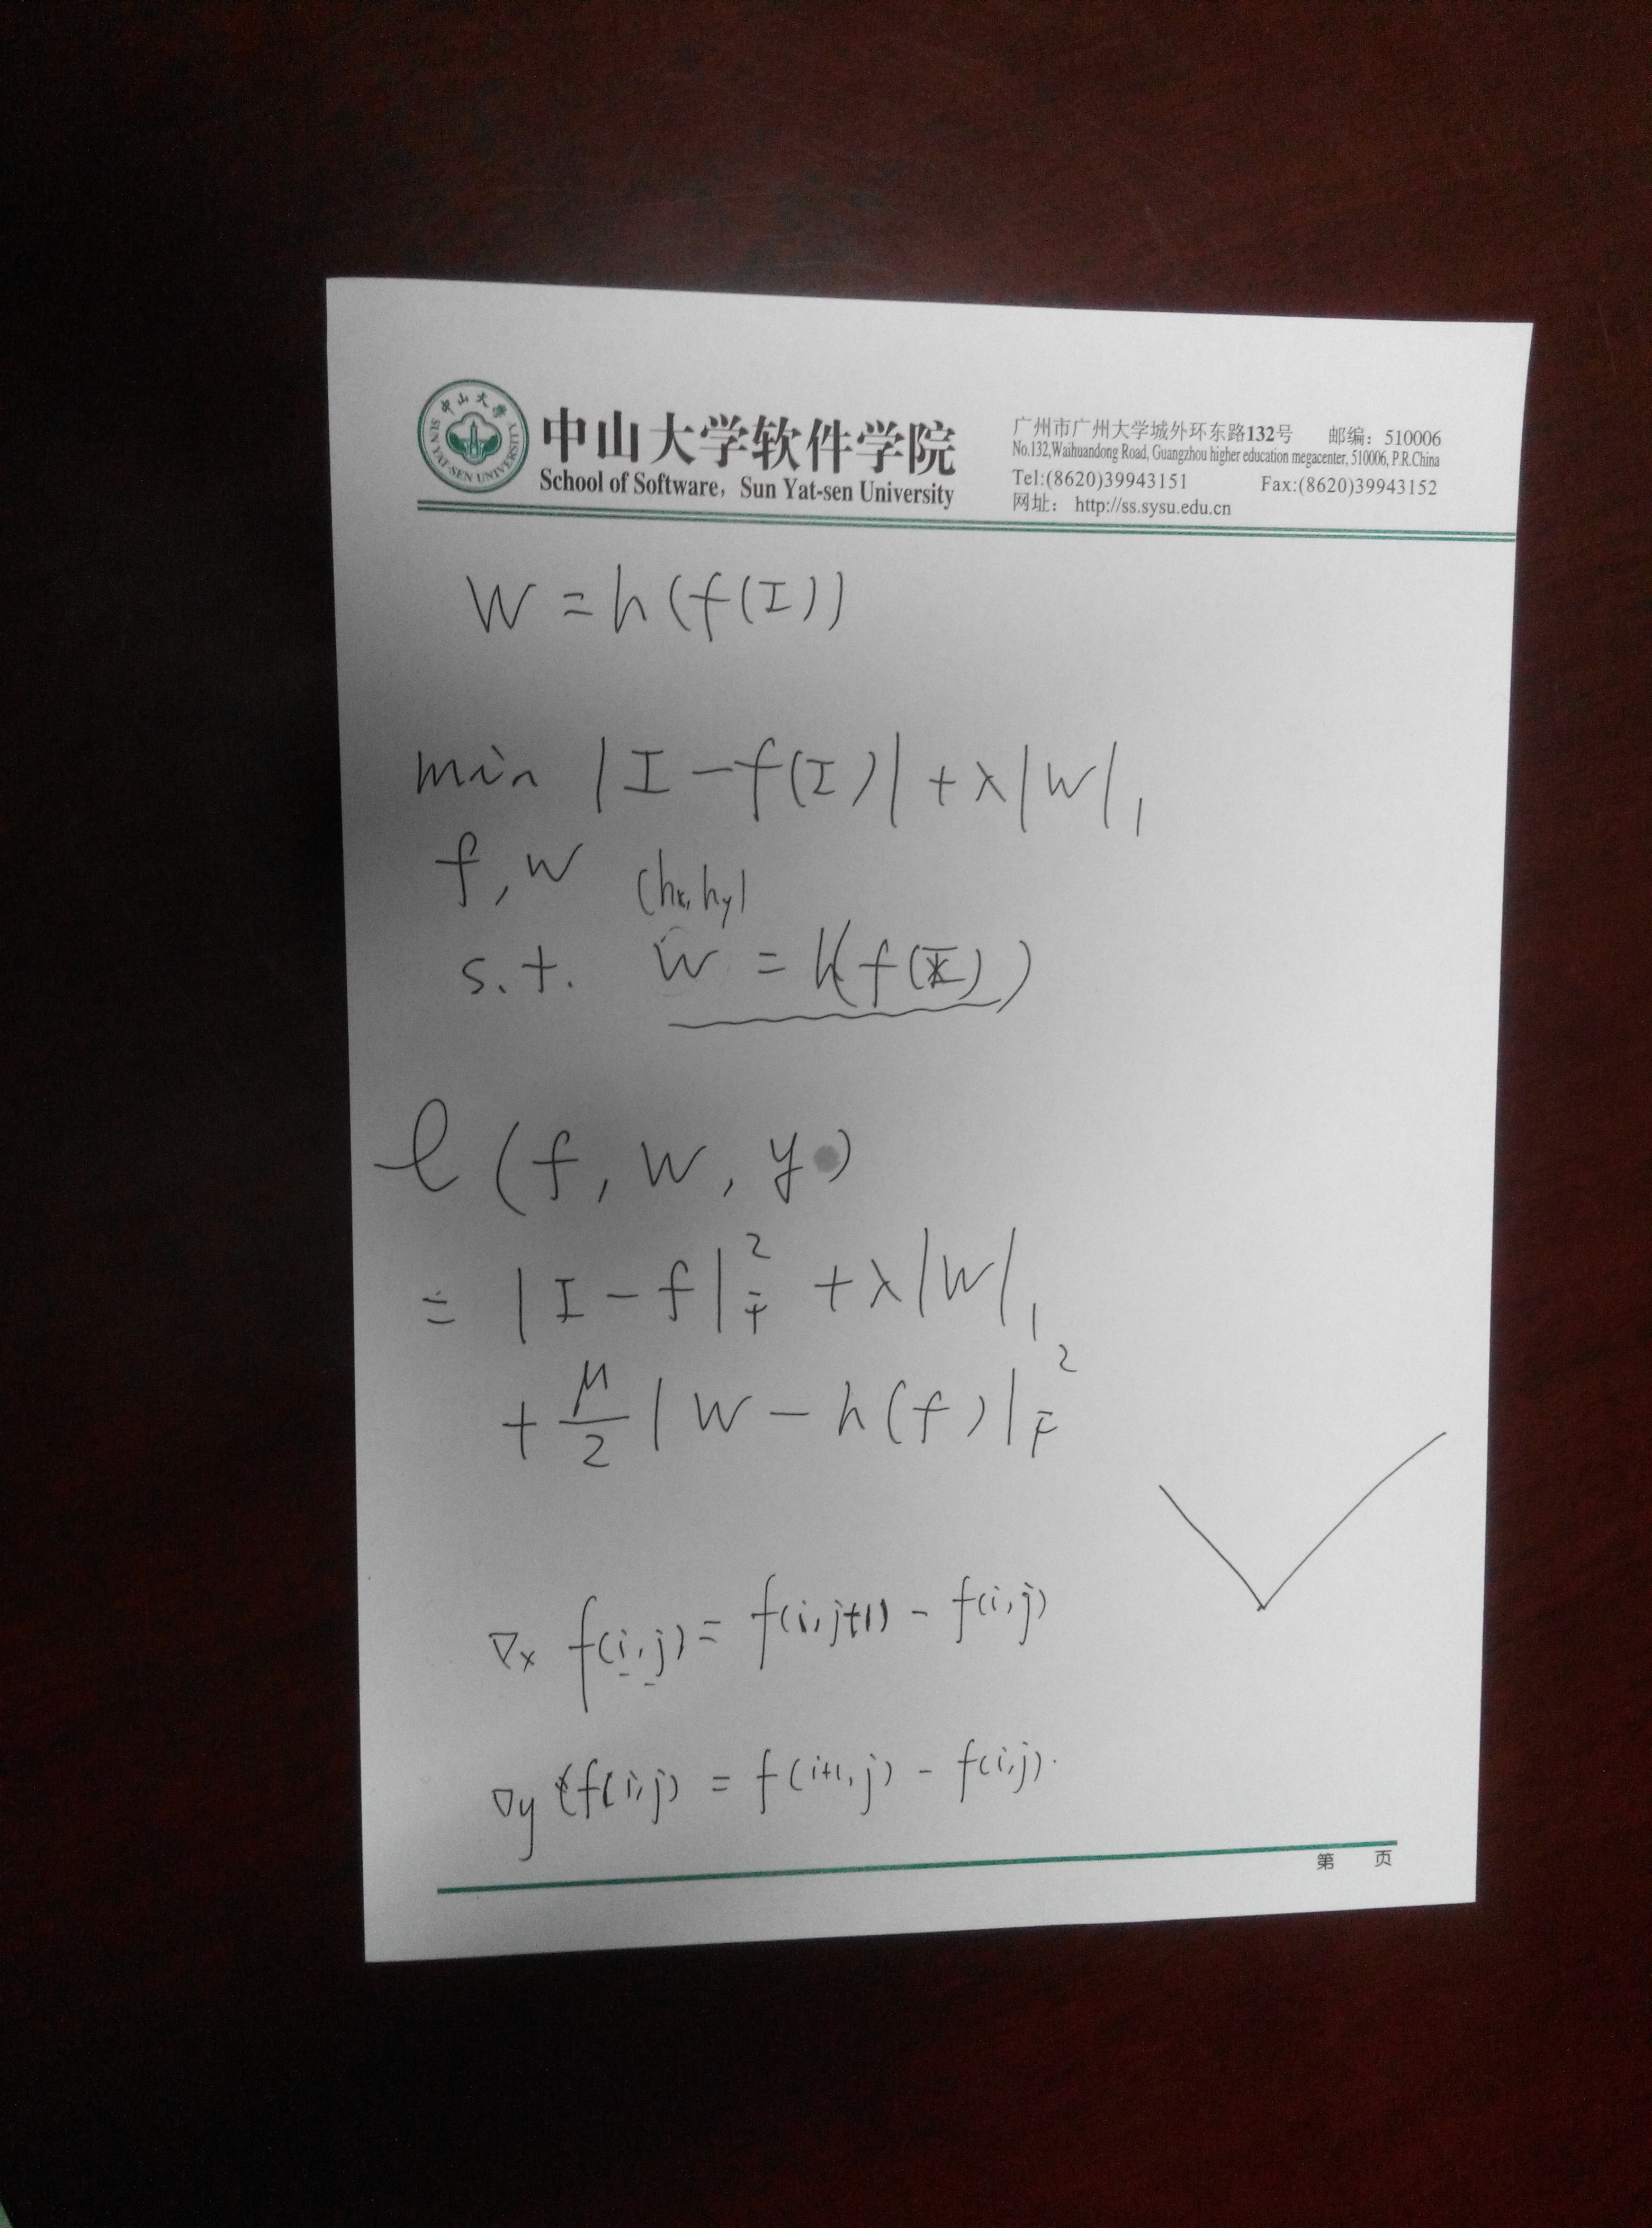 中山大学 SUN YAT-SEN UNIVERSITY
中山大学软件学院
School of Software, Sun Yat-sen University
广州市广州大学城外环东路132号 邮编：510006
No.132,Waihuandong Road, Guangzhou higher education megacenter, 510006, P.R.China
Tel:(8620)39943151 Fax:(8620)39943152
网址： http://ss.sysu.edu.cn
W = h(f(I))
min |I - f(I)| + λ|W|₁
f, w (hx, hy)
s.t. W = h(f(I))
ℓ(f, W, y)
= |I - f|²_F + λ|W|₁
+ μ/2 |W - h(f)|²_F
∇x f(i,j) = f(i,j+1) - f(i,j)
∇y (f(i,j) = f(i+1,j) - f(i,j).
第 页